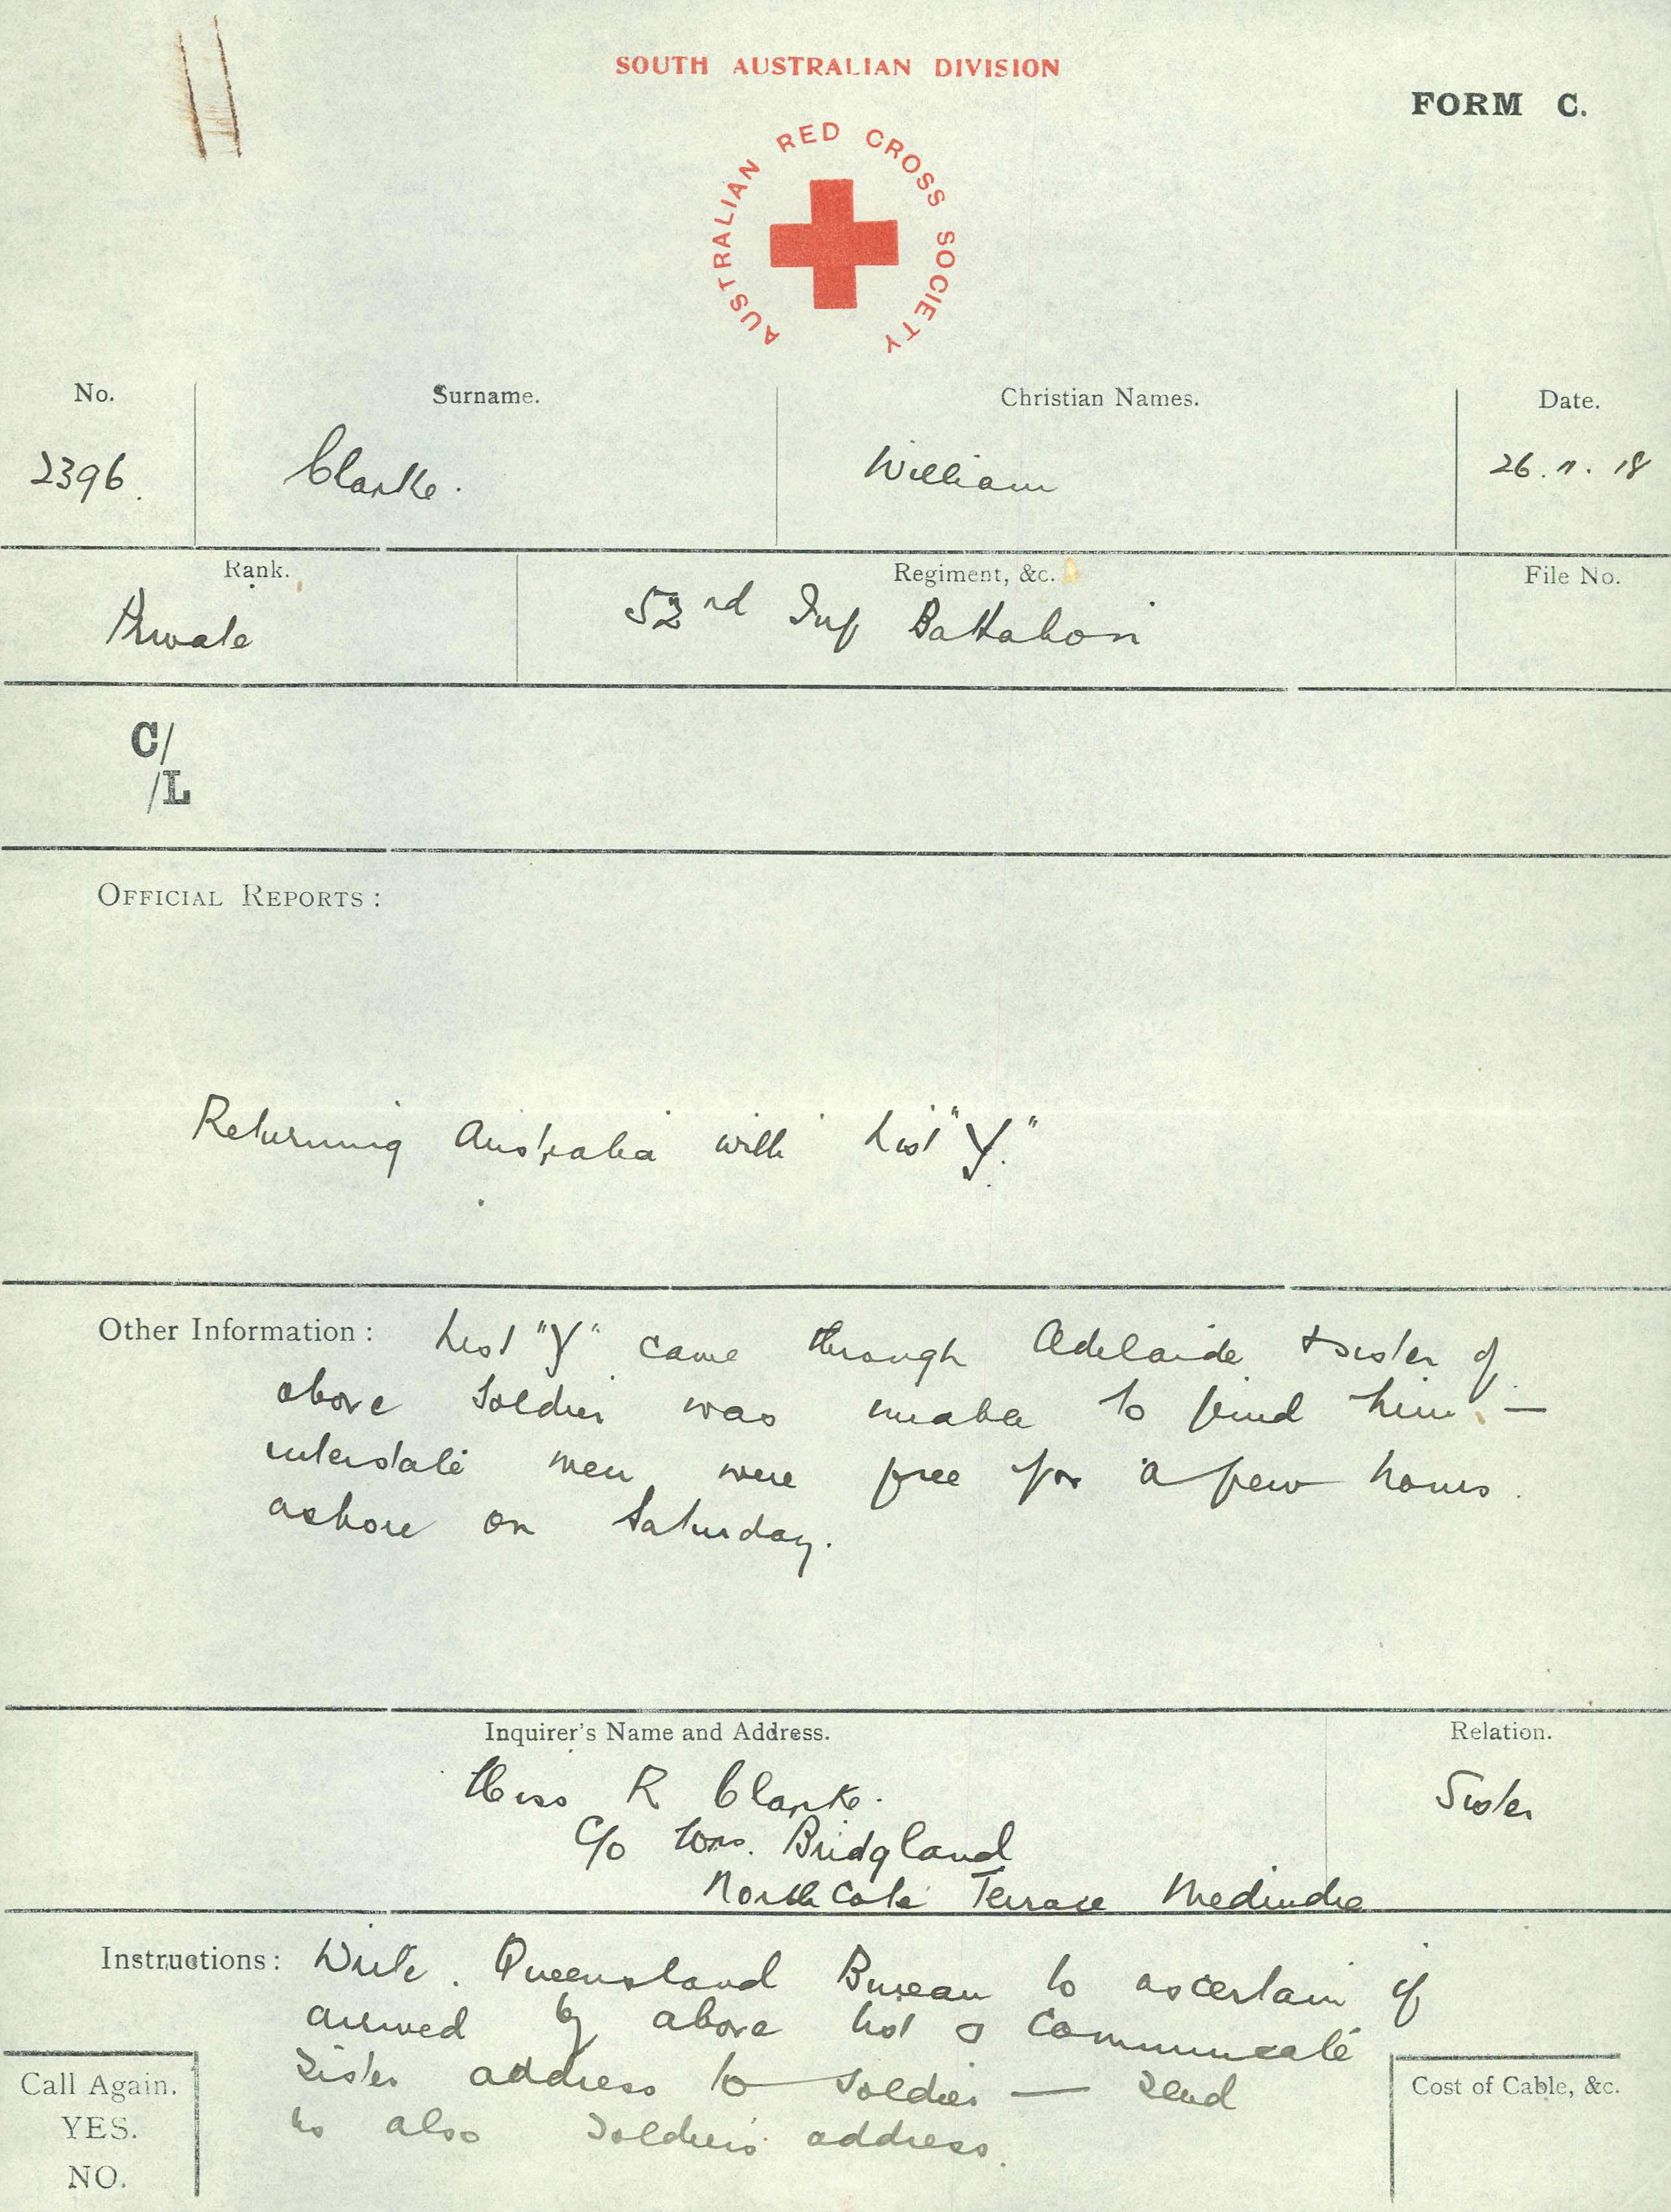 SOUTH AUSTRALIAN DIVISION
FORM C.
AUSTRALIAN RED CROSS SOCIETY
No. Surname. Christian Names. Date.
2396. Clarke. William 26.11.18
Rank. Regiment, &c. File No.
Private 52nd Inf Battalion
C/
/L
OFFICIAL REPORTS:
Returning Australia with List "Y."
Other Information: List "Y" came through Adelaide & sister of
above soldier was unable to find him —
interstate men were free for a few hours
ashore on Saturday.
Inquirer's Name and Address. Relation.
Miss R Clarke. Sister
C/o Mrs. Bridgland
Northcote Terrace Medindie
Instructions: Write. Queensland Bureau to ascertain if
arrived by above list & communicate
sister address to soldier — send
us also soldiers address.
Call Again.
YES.
NO.
Cost of Cable, &c.